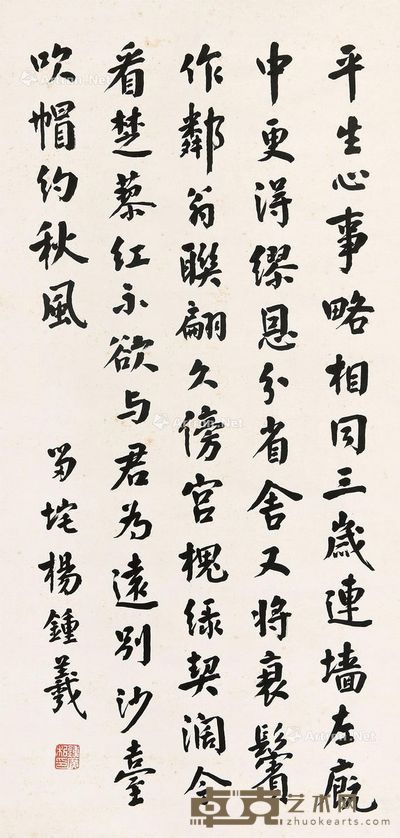 平生心事略相同三歲連墻左廐
中更得繆恩分省舍又將衰鬢
作鄰翁聯翩久傍宮槐綠契闊今
看楚蓼紅不欲與君為遠別沙臺
吹帽約秋風
留垞楊鍾羲
卓克艺术网
www.zhuokearts.com